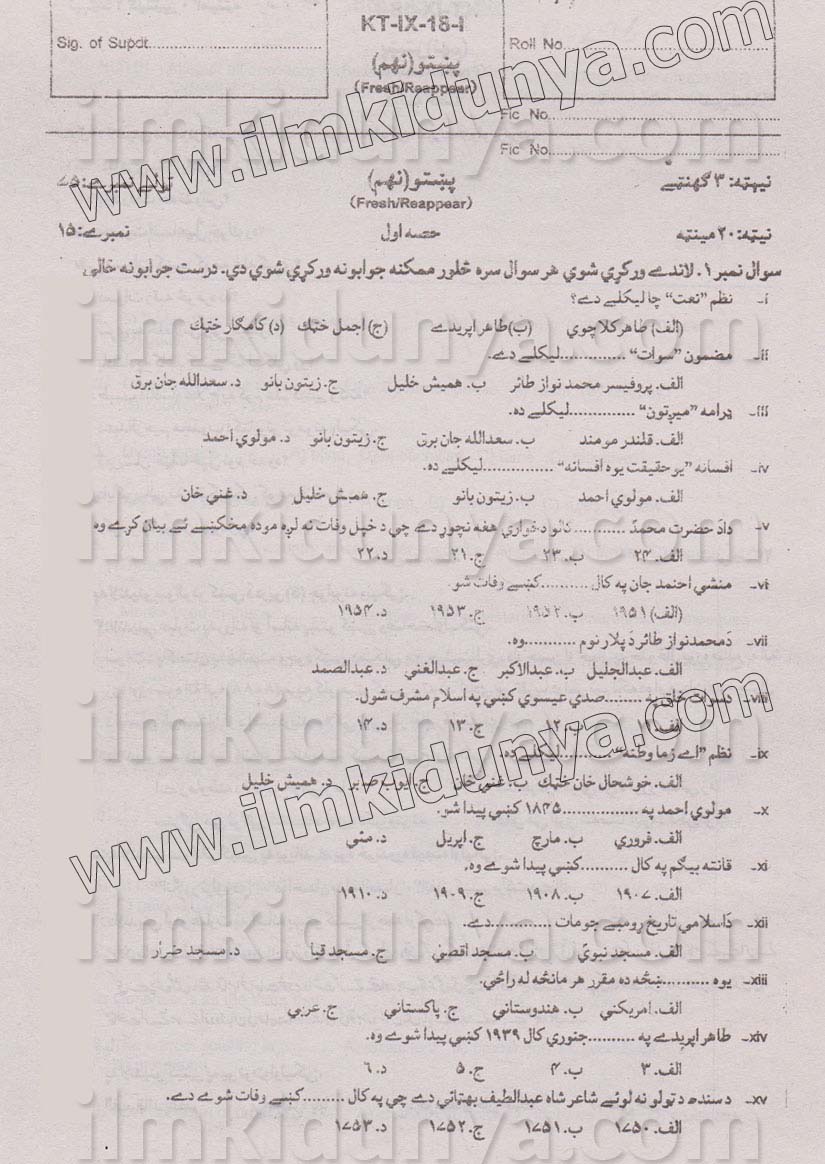 KT-IX-18-I
Sig. of Supdt.
Roll No.
پښتو(نهم)
(Fresh/Reappear)
Fic No.
Fic No.
نېټه: ۳ گهنټے پښتو(نهم)
(Fresh/Reappear)
نېټه: ۲۰ مېنټه حصه اول نمبرے: ۱۵
سوال نمبر ۱. لاندے ورکړې شوي هر سوال سره څلور ممکنه جوابونه ورکړې شوي دي. درست جوابونه خالي
i- نظم "نعت" چا ليکلے دے؟
(الف) طاهر کلاچوي (ب) طاهر اپريدے (ج) اجمل خټک (د) کامګار خټک
ii- مضمون "سوات" .............ليکلے دے.
الف. پروفيسر محمد نواز طائر ب. هميش خليل ج. زيتون بانو د. سعدالله جان برق
iii- ډرامه "ميرتون" .............ليکلے ده.
الف. قلندر مومند ب. سعدالله جان برق ج. زيتون بانو د. مولوي احمد
iv- افسانه "يو حقيقت يوه افسانه" .............ليکلے ده.
الف. مولوي احمد ب. زيتون بانو ج. هميش خليل د. غني خان
v- دا د حضرت محمدؐ .......... نچوړ دے چې د خپل وفات نه لږه موده مخکښے ئے بيان کړے وه
الف. ۲۴ ب. ۲۳ ج. ۲۱ د. ۲۲
vi- منشي احمد جان په کال ..........کښے وفات شو.
(الف) ۱۹۵۱ ب. ۱۹۵۲ ج. ۱۹۵۳ د. ۱۹۵۴
vii- د محمد نواز طائر د پلار نوم ..........وه.
الف. عبدالجليل ب. عبدالاکبر ج. عبدالغني د. عبدالصمد
viii- د سوات خلق په ........صدي عيسوي کښې په اسلام مشرف شول.
الف. ۱۱ ب. ۱۲ ج. ۱۳ د. ۱۴
ix- نظم "اے زما وطنه" ..........ليکلے ده.
الف. خوشحال خان خټک ب. غني خان ج. ايوب صابر د. هميش خليل
x- مولوي احمد په .............. ۱۸۴۵ کښې پيدا شو.
الف. فروري ب. مارچ ج. اپريل د. مئي
xi- قانته بيګم په کال ..........کښې پيدا شوے وه.
الف. ۱۹۰۷ ب. ۱۹۰۸ ج. ۱۹۰۹ د. ۱۹۱۰
xii- د اسلامي تاريخ رومبے جومات .............دے.
الف. مسجد نبويؐ ب. مسجد اقصىٰ ج. مسجد قبا د. مسجد ضرار
xiii- يوه ..........ښځه ده مقرر هر مانځه له راځي.
الف. امريکني ب. هندوستاني ج. پاکستاني ج. عربي
xiv- طاهر اپريدے په ..........جنوري کال ۱۹۳۹ کښې پيدا شوے وه.
الف. ۳ ب. ۴ ج. ۵ د. ۶
xv- د سندھ د ټولو نه لوئے شاعر شاه عبدالطيف بهټائي دے چې په کال .........کښے وفات شوے دے.
الف. ۱۷۵۰ ب. ۱۷۵۱ ج. ۱۷۵۲ د. ۱۷۵۳
www.ilmkidunya.com
www.ilmkidunya.com
ilmkidunya.com
ilmkidunya.com
ilmkidunya.com
ilmkidunya.com
ilmkidunya.com
ilmkidunya.com